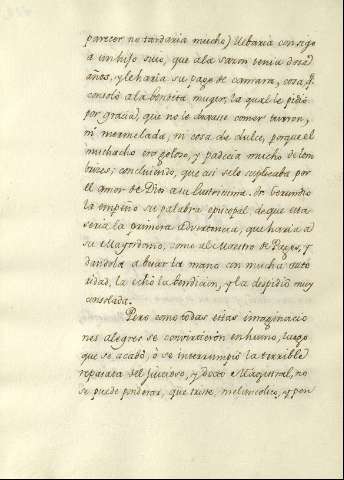 parecer no tardaria mucho) llebaria consigo
a un hijo suio, que a la sazon tenia doze
años, y le haria su page de camara, cosa q.
consoló a la bendita muger, la qual le pidio
por gracia, que no le dejase comer turron,
ni mermelada, ni cosa de dulce, porque el
muchacho era goloso, y padecia mucho de lom
brizes; concluiendo, que asi selo suplicaba por
el amor de Dios a su Ilustrissima. Fr. Gerundio
la empeño su palabra episcopal de que esta
seria la primera advertencia, que haria à
su Mayordomo, como al Maestro de Pages, y
dandola a besar la mano con mucha auto
ridad, la echó la bendicion, y la despidio muy
consolada.
Pero como todas estas imaginacio
nes alegres se convirtieron en humo, luego
que se acabó, ò se interrumpiò la terrible
repasata del juicioso, y docto Magistral, no
se puede ponderar, que triste, melancolico, y pen